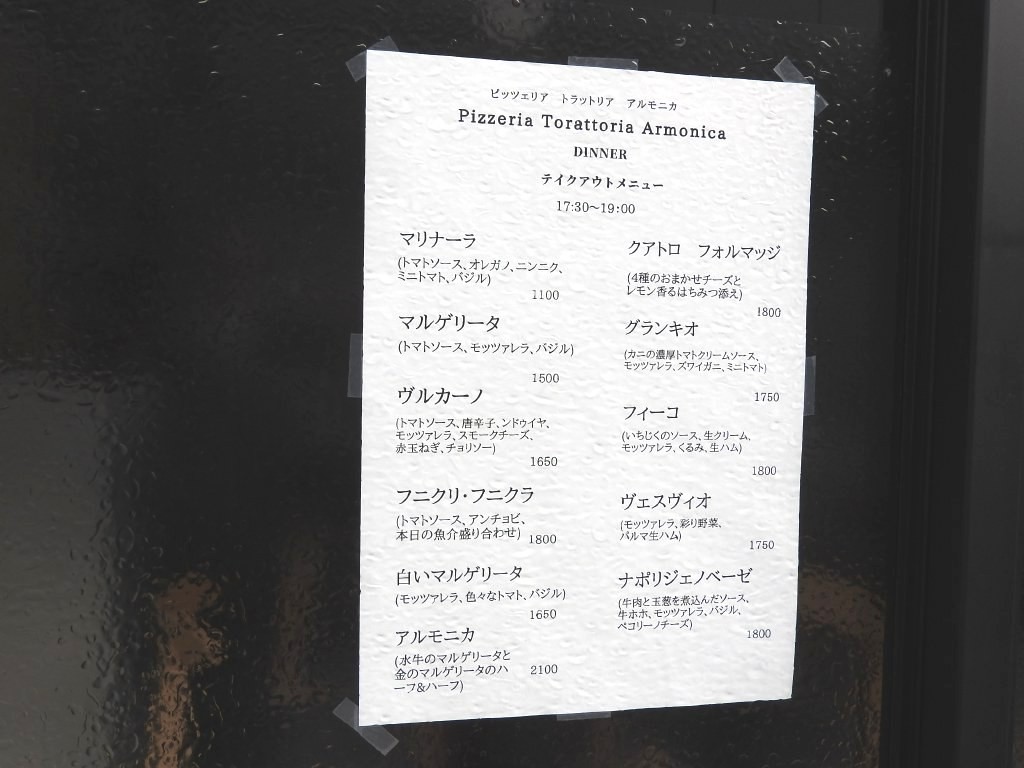 ピッツェリア　トラットリア　アルモニカ
Pizzeria Torattoria Armonica
DINNER
テイクアウトメニュー
17:30～19:00
マリナーラ
(トマトソース、オレガノ、ニンニク、
ミニトマト、バジル)
1100
マルゲリータ
(トマトソース、モッツァレラ、バジル)
1500
ヴルカーノ
(トマトソース、唐辛子、ンドゥイヤ、
モッツァレラ、スモークチーズ、
赤玉ねぎ、チョリソー)
1650
フニクリ・フニクラ
(トマトソース、アンチョビ、
本日の魚介盛り合わせ)
1800
白いマルゲリータ
(モッツァレラ、色々なトマト、バジル)
1650
アルモニカ
(水牛のマルゲリータと
金のマルゲリータのハ
ーフ&ハーフ)
2100
クアトロ　フォルマッジ
(4種のおまかせチーズと
レモン香るはちみつ添え)
1800
グランキオ
(カニの濃厚トマトクリームソース、
モッツァレラ、ズワイガニ、ミニトマト)
1750
フィーコ
(いちじくのソース、生クリーム、
モッツァレラ、くるみ、生ハム)
1800
ヴェスヴィオ
(モッツァレラ、彩り野菜、
パルマ生ハム)
1750
ナポリジェノベーゼ
(牛肉と玉葱を煮込んだソース、
牛ホホ、モッツァレラ、バジル、
ペコリーノチーズ)
1800